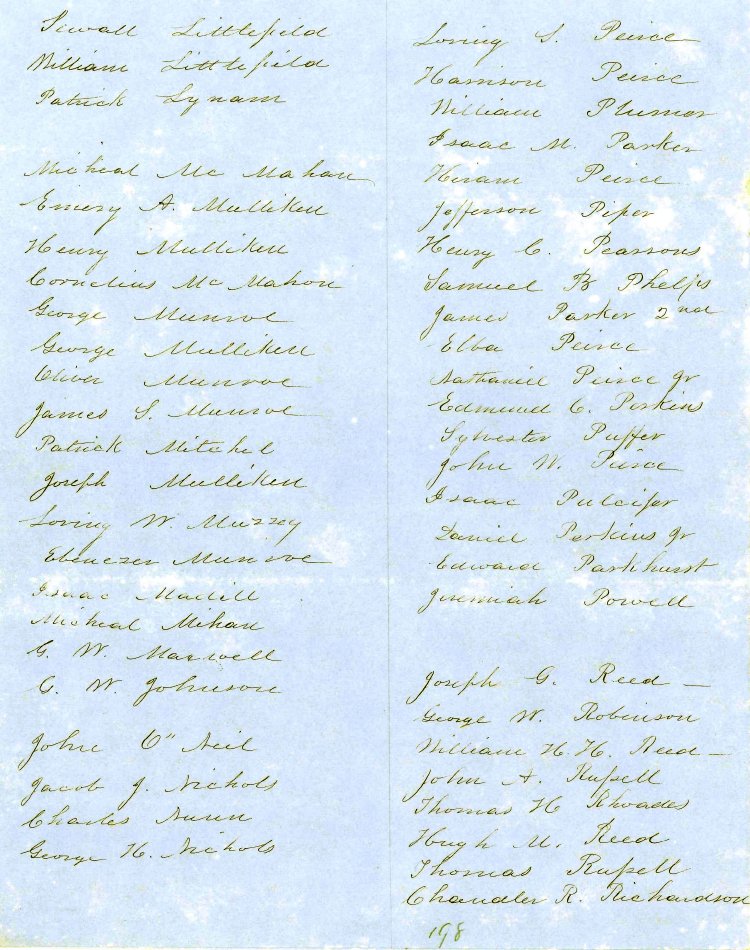 Sewall Littlefield
William Littlefield
Patrick Lynam
Micheal Mc Mahan
Emery A. Mulliken
Henry Mulliken
Cornelius Mc Mahon
George Munroe
George Mulliken
Oliver Munroe
James S. Munroe
Patrick Mitchel
Joseph Mulliken
Loring W. Muzzey
Ebenezer Munroe
Isaac
Micheal Mehan
G. W. Maxwell
C. W. Johnson
John O" Neil
Jacob J. Nichols
Charles Nunn
George H. Nichols
Loring S. Peirce
Harrison Peirce
William Plumer
Isaac M. Parker
Hiram Peirce
Jefferson Piper
Henry C. Pearsons
Samuel B Phelps
James Parker 2nd
Elba Peirce
Nathaniel Peirce Jr
Edmund C. Perkins
Sylvester Puffer
John W. Peirce
Isaac Pulcifer
Daniel Perkins Jr
Edward Parkhurst
Jeremiah Powell
Joseph G. Reed —
George W. Robinson
William H. H. Reed —
John A. Russell
Thomas H Rhoades
Hugh M. Reed
Thomas Russell
Chandler R. Richardson
198